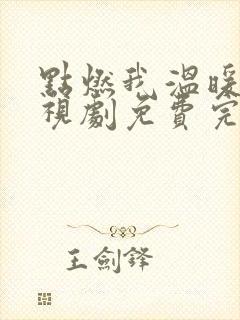 點燃我,溫暖
視劇免費完
王劍鋒